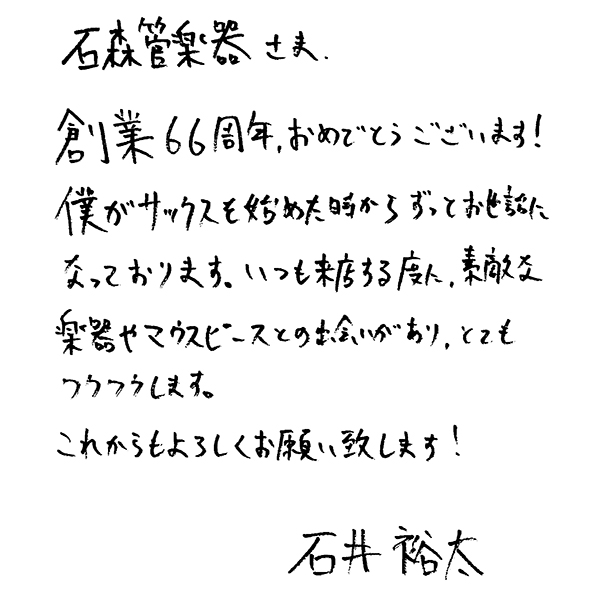 石森管楽器さま.
創業66周年,おめでとうございます!
僕がサックスを始めた時からずっとお世話に
なっております。いつも来店する度に,素敵な
楽器やマウスピースとの出会いがあり,とても
ワクワクします。
これからもよろしくお願い致します!
石井裕太